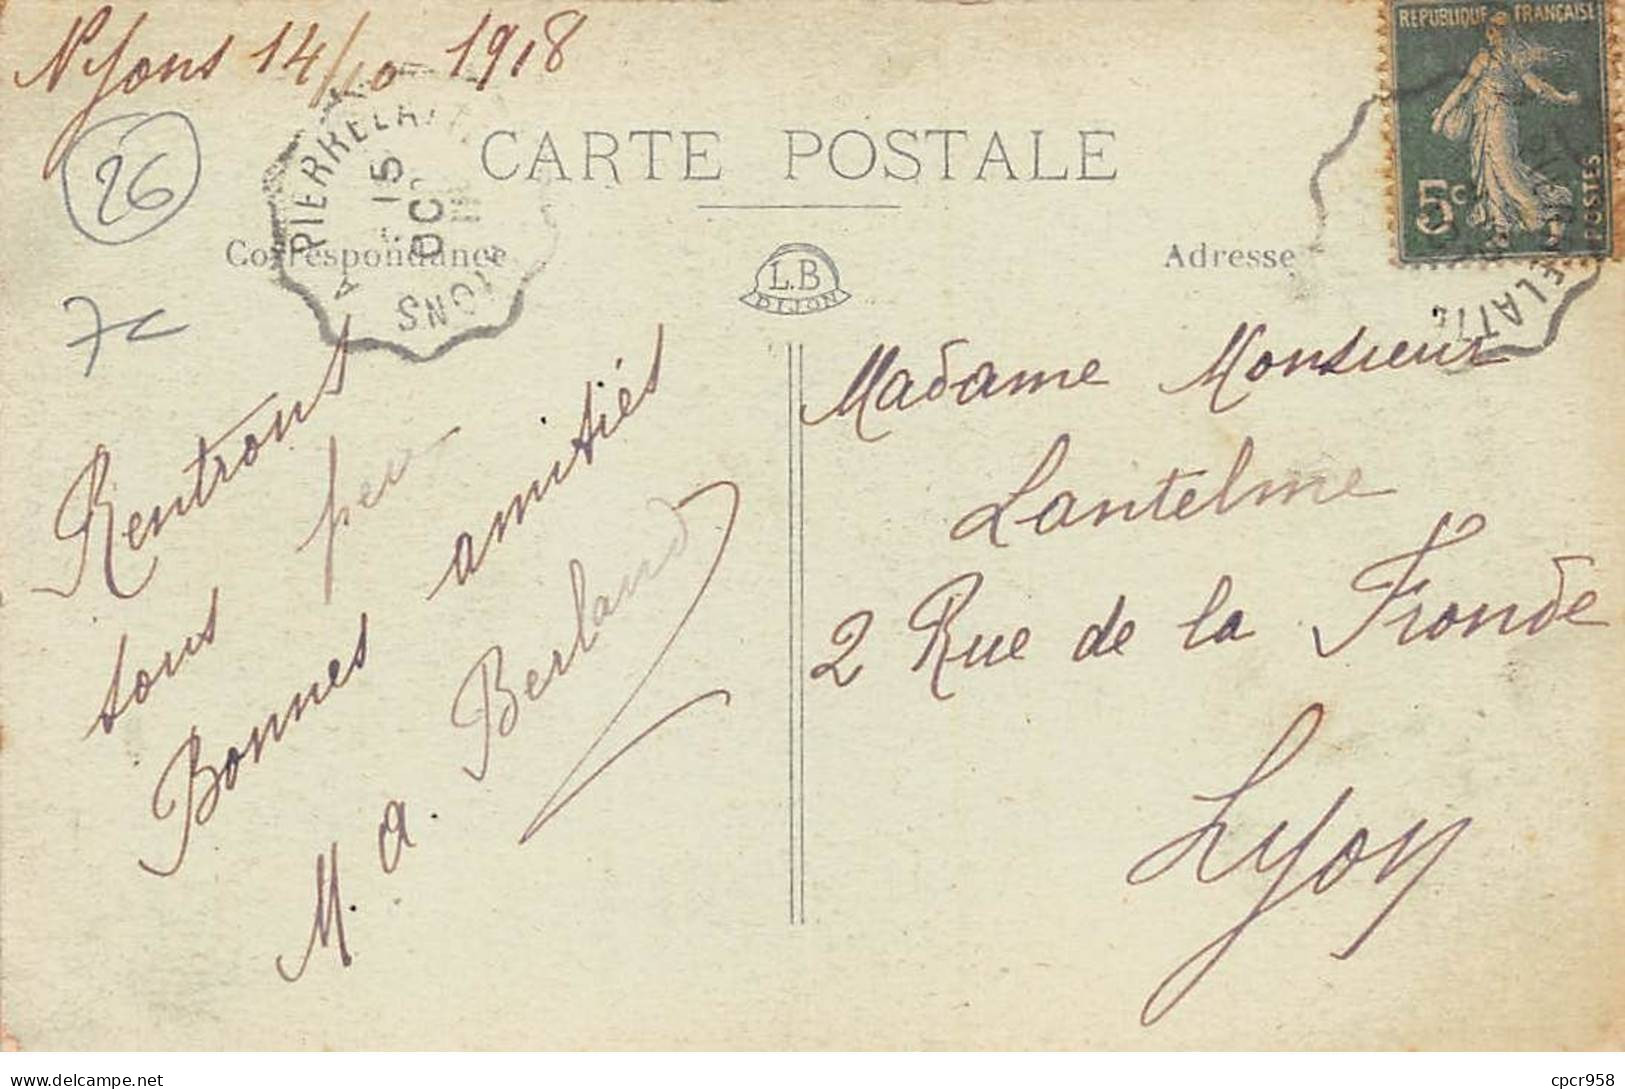 Nyons 14/10 1918
26
7c
PIERRELATTE
15
OC
A NYONS
CARTE POSTALE
Correspondance
L.B
DIJON
Adresse
REPUBLIQUE FRANÇAISE
5c
POSTES
Rentrons
sous peu
Bonnes amitiés
M. a. Berland
Madame Monsieur
Lantelme
2 Rue de la Fronde
Lyon
delcampe.net
cpcr958